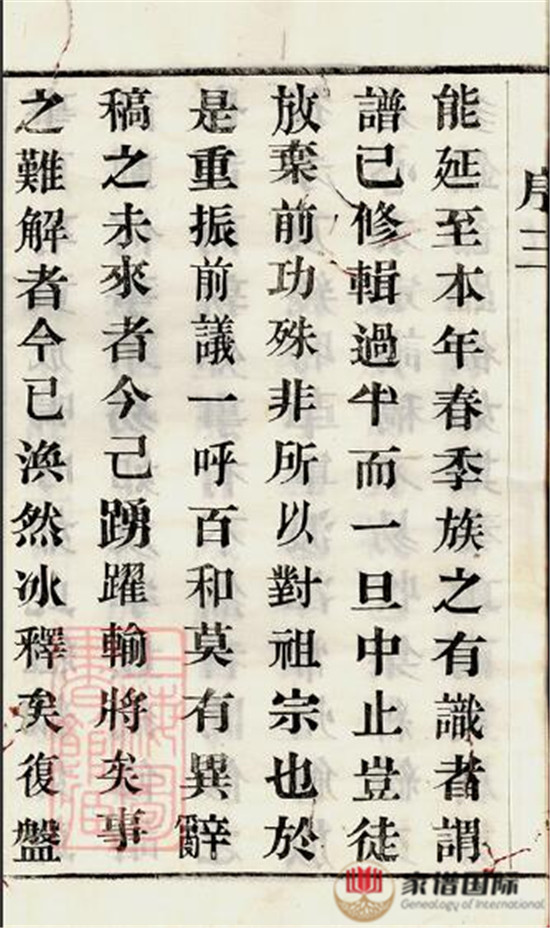 序三
能延至本年春季族之有識者謂
譜已修輯過半而一旦中止豈徒
放棄前功殊非所以對祖宗也於
是重振前議一呼百和莫有異辭
稿之未來者今已踴躍輸將矣事
之難解者今已渙然冰釋矣復盤
家谱国际
Genealogy of International